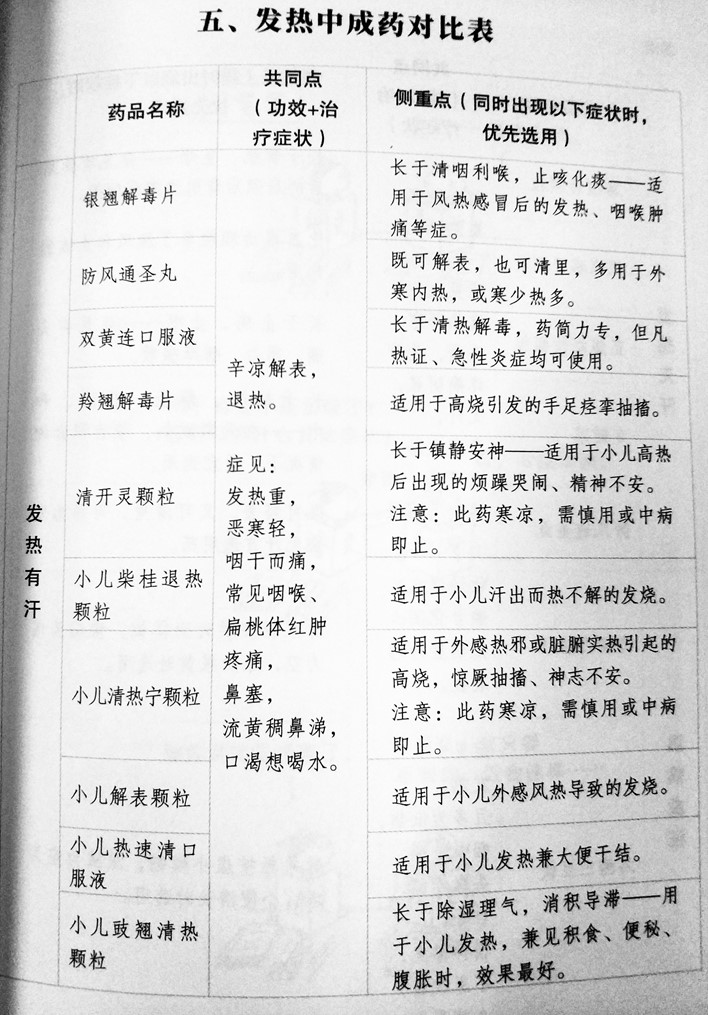 五、发热中成药对比表
药品名称
共同点
（功效+治
疗症状）
侧重点（同时出现以下症状时，
优先选用）
发热有汗
辛凉解表，
退热。
症见：
发热重，
恶寒轻，
咽干而痛，
常见咽喉、
扁桃体红肿
疼痛，
鼻塞，
流黄稠鼻涕，
口渴想喝水。
银翘解毒片
长于清咽利喉，止咳化痰——适
用于风热感冒后的发热、咽喉肿
痛等症。
防风通圣丸
既可解表，也可清里，多用于外
寒内热，或寒少热多。
双黄连口服液
长于清热解毒，药简力专，但凡
热证、急性炎症均可使用。
羚翘解毒片
适用于高烧引发的手足痉挛抽搐。
清开灵颗粒
长于镇静安神——适用于小儿高热
后出现的烦躁哭闹、精神不安。
注意：此药寒凉，需慎用或中病
即止。
小儿柴桂退热
颗粒
适用于小儿汗出而热不解的发烧。
小儿清热宁颗粒
适用于外感热邪或脏腑实热引起的
高烧，惊厥抽搐、神志不安。
注意：此药寒凉，需慎用或中病
即止。
小儿解表颗粒
适用于小儿外感风热导致的发烧。
小儿热速清口
服液
适用于小儿发热兼大便干结。
小儿豉翘清热
颗粒
长于除湿理气，消积导滞——用
于小儿发热，兼见积食、便秘、
腹胀时，效果最好。